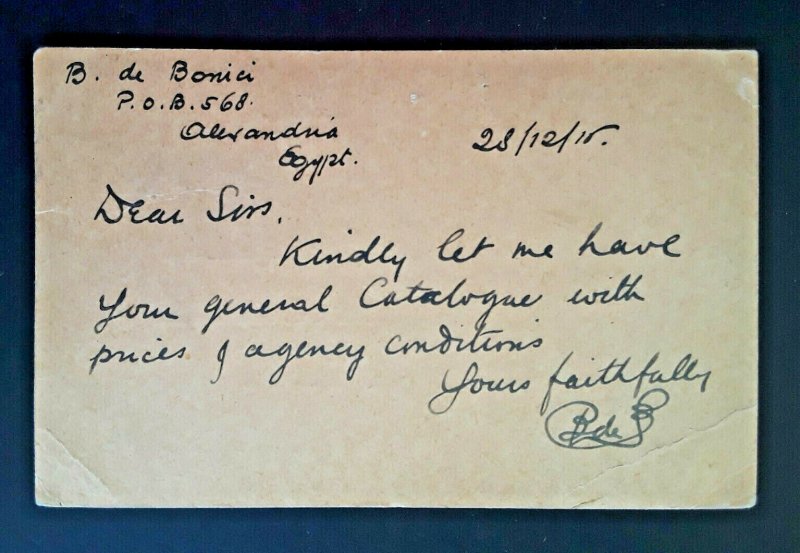 B. de Bonici
P.O.B. 568.
Alexandria
Egypt.
28/12/15.
Dear Sirs,
Kindly let me have
your general Catalogue with
prices & agency conditions
Yours faithfully
B de B